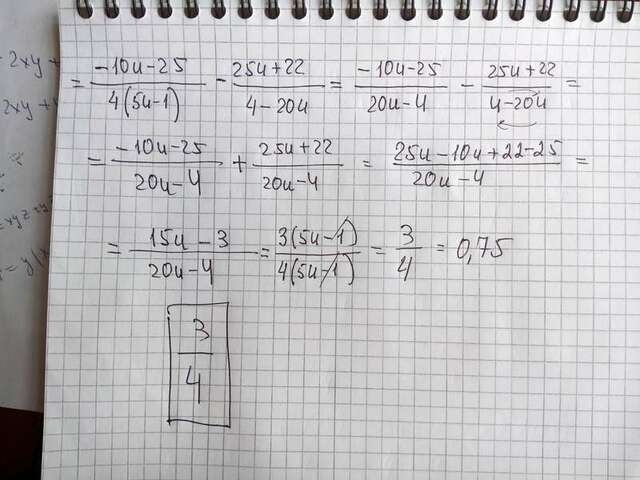 = (-10u-25)/(4(5u-1)) - (25u+22)/(4-20u) = (-10u-25)/(20u-4) - (25u+22)/(4-20u) =
= (-10u-25)/(20u-4) + (25u+22)/(20u-4) = (25u-10u+22-25)/(20u-4) =
= (15u-3)/(20u-4) = (3(5u-1))/(4(5u-1)) = 3/4 = 0,75
3/4